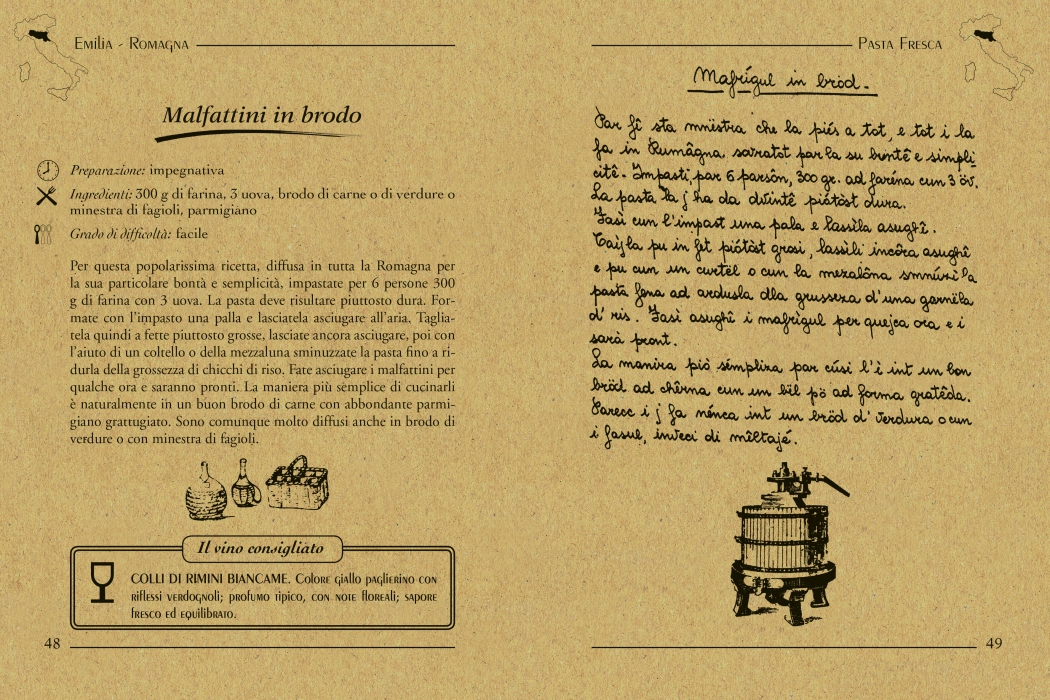 Emilia - Romagna
Malfattini in brodo
Preparazione: impegnativa
Ingredienti: 300 g di farina, 3 uova, brodo di carne o di verdure o
minestra di fagioli, parmigiano
Grado di difficoltà: facile
Per questa popolarissima ricetta, diffusa in tutta la Romagna per
la sua particolare bontà e semplicità, impastate per 6 persone 300
g di farina con 3 uova. La pasta deve risultare piuttosto dura. For-
mate con l'impasto una palla e lasciatela asciugare all'aria. Taglia-
tela quindi a fette piuttosto grosse, lasciate ancora asciugare, poi con
l'aiuto di un coltello o della mezzaluna sminuzzate la pasta fino a ri-
durla della grossezza di chicchi di riso. Fate asciugare i malfattini per
qualche ora e saranno pronti. La maniera più semplice di cucinarli
è naturalmente in un buon brodo di carne con abbondante parmi-
giano grattugiato. Sono comunque molto diffusi anche in brodo di
verdure o con minestra di fagioli.
Il vino consigliato
COLLI DI RIMINI BIANCAME. Colore giallo paglierino con
riflessi verdognoli; profumo tipico, con note floreali; sapore
fresco ed equilibrato.
48
Pasta Fresca
Mafrígul in bröd.
Par fê sta mnëstra che la piés a tot, e tot i la
fa in Rumâgna, soratot par la su bontê e simpli
citê. Impastì par 6 parsôn, 300 gr. ad faréna cun 3 öv.
La pasta la j ha da dvintê piótòst dura.
Fasì cun l'impast una pala e lassìla asughê.
Taijla pu in fet piótòst grosi, lassìli incôra asughê
e pu cun un curtèl o cun la mezalôna smnúzì la
pasta fena ad ardusla dla grusseza d'una garnëla
d' ris. Fasì asughê i mafrìgul per quejca ora e i
sarà pront.
La manira piò sémpliza par cúsi l'è int un bon
bröd ad chêrna cun un bël pö ad forma gratêda.
Parecc i j fa nénca int un bröd d' verdura o cun
i fasul, inveci di mîltajé.
49